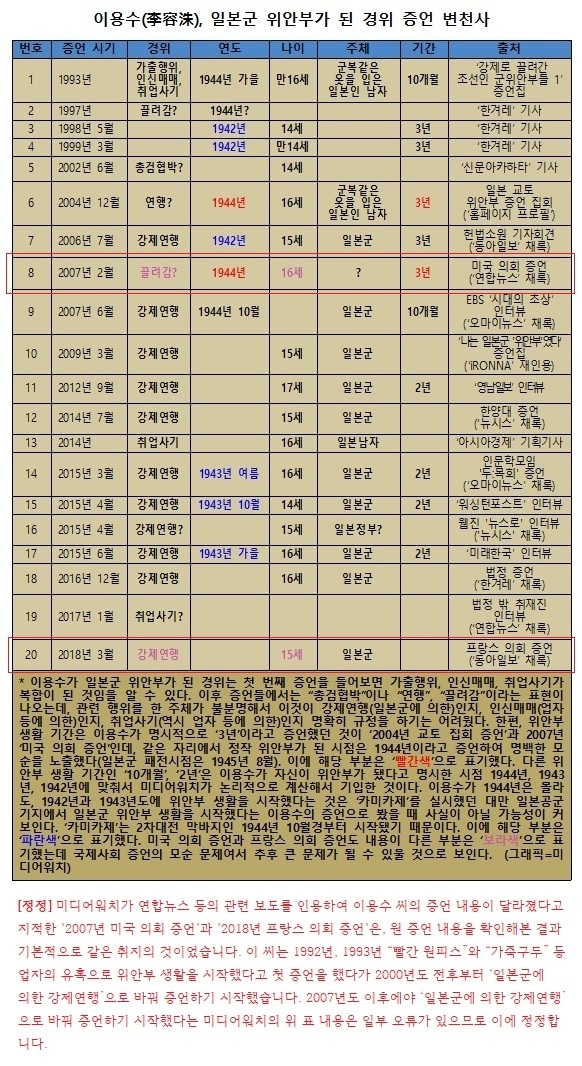 이용수(李容洙), 일본군 위안부가 된 경위 증언 변천사
번호 증언 시기 경위 연도 나이 주체 기간 출처
1 1993년 가출행위, 인신매매, 취업사기 1944년 가을 만16세 군복같은 옷을 입은 일본인 남자 10개월 '강제로 끌려간 조선인 군위안부들 1' 증언집
2 1997년 끌려감? 1944년? '한겨레' 기사
3 1998년 5월 1942년 14세 3년 '한겨레' 기사
4 1999년 3월 1942년 만14세 3년 '한겨레' 기사
5 2002년 6월 총검협박? 14세 '신문아카하타' 기사
6 2004년 12월 연행? 1944년 16세 군복같은 옷을 입은 일본인 남자 3년 일본 교토 위안부 증언 집회 ('홈페이지 프로필')
7 2006년 7월 강제연행 1942년 15세 일본군 3년 헌법소원 기자회견 ('동아일보' 채록)
8 2007년 2월 끌려감? 1944년 16세 ? 3년 미국 의회 증언 ('연합뉴스' 채록)
9 2007년 6월 강제연행 1944년 10월 일본군 10개월 EBS '시대의 초상' 인터뷰 ('오마이뉴스' 채록)
10 2009년 3월 강제연행 15세 일본군 '나는 일본군 '위안부'였다' 증언집 ('iRONNA' 재인용)
11 2012년 9월 강제연행 17세 일본군 2년 '영남일보' 인터뷰
12 2014년 7월 강제연행 15세 일본군 한양대 증언 ('뉴시스' 채록)
13 2014년 취업사기 16세 일본남자 '아시아경제' 기획기사
14 2015년 3월 강제연행 1943년 여름 16세 일본군 2년 인문학모임 '두:목회' 증언 ('오마이뉴스' 채록)
15 2015년 4월 강제연행 1943년 10월 14세 일본군 2년 '워싱턴포스트' 인터뷰
16 2015년 4월 강제연행? 15세 일본정부? 웹진 '뉴스로' 인터뷰 ('뉴시스' 채록)
17 2015년 6월 강제연행 1943년 가을 16세 일본군 2년 '미래한국' 인터뷰
18 2016년 12월 강제연행 16세 일본군 법정 증언 ('한겨레' 채록)
19 2017년 1월 취업사기? 법정 밖 취재진 인터뷰 ('연합뉴스' 채록)
20 2018년 3월 강제연행 15세 일본군 프랑스 의회 증언 ('동아일보' 채록)
* 이용수가 일본군 위안부가 된 경위는 첫 번째 증언을 들어보면 가출행위, 인신매매, 취업사기가
복합이 된 것임을 알 수 있다. 이후 증언들에서는 "총검협박"이나 "연행", "끌려감"이라는 표현이
나오는데, 관련 행위를 한 주체가 불분명해서 이것이 강제연행(일본군에 의한)인지, 인신매매(업자
등에 의한)인지, 취업사기(역시 업자 등에 의한)인지 명확히 규정을 하기는 어려웠다. 한편, 위안부
생활 기간은 이용수가 명시적으로 '3년'이라고 증언했던 것이 '2004년 교토 집회 증언'과 2007년
'미국 의회 증언'인데, 같은 자리에서 정작 위안부가 된 시점은 1944년이라고 증언하여 명백한 모
순을 노출했다(일본군 패전시점은 1945년 8월). 이에 해당 부분은 '빨간색'으로 표기했다. 다른 위
안부 생활 기간인 '10개월', '2년'은 이용수가 자신이 위안부가 됐다고 명시한 시점 1944년, 1943
년, 1942년에 맞춰서 미디어워치가 논리적으로 계산해서 기입한 것이다. 이용수가 1944년은 몰라
도, 1942년과 1943년도에 위안부 생활을 시작했다는 것은 '카미카제'를 실시했던 대만 일본공군
기지에서 일본군 위안부 생활을 시작했다는 이용수의 증언으로 봤을 때 사실이 아닐 가능성이 커
보인다. '카미카제'는 2차대전 막바지인 1944년 10월경부터 시작됐기 때문이다. 이에 해당 부분은
'파란색'으로 표기했다. 미국 의회 증언과 프랑스 의회 증언도 내용이 다른 부분은 '보라색'으로 표
기했는데 국제사회 증언의 모순 문제여서 추후 큰 문제가 될 수 있을 것으로 보인다. (그래픽=미
디어워치)
[정정] 미디어워치가 연합뉴스 등의 관련 보도를 인용하여 이용수 씨의 증언 내용이 달라졌다고
지적한 '2007년 미국 의회 증언'과 '2018년 프랑스 의회 증언'은, 원 증언 내용을 확인해본 결과
기본적으로 같은 취지의 것이었습니다. 이 씨는 1992년, 1993년 "빨간 원피스"와 "가죽구두" 등
업자의 유혹으로 위안부 생활을 시작했다고 첫 증언을 했다가 2000년도 전후부터 '일본군에
의한 강제연행'으로 바꿔 증언하기 시작했습니다. 2007년도 이후에야 '일본군에 의한 강제연행'
으로 바꿔 증언하기 시작했다는 미디어워치의 위 표 내용은 일부 오류가 있으므로 이에 정정합
니다.